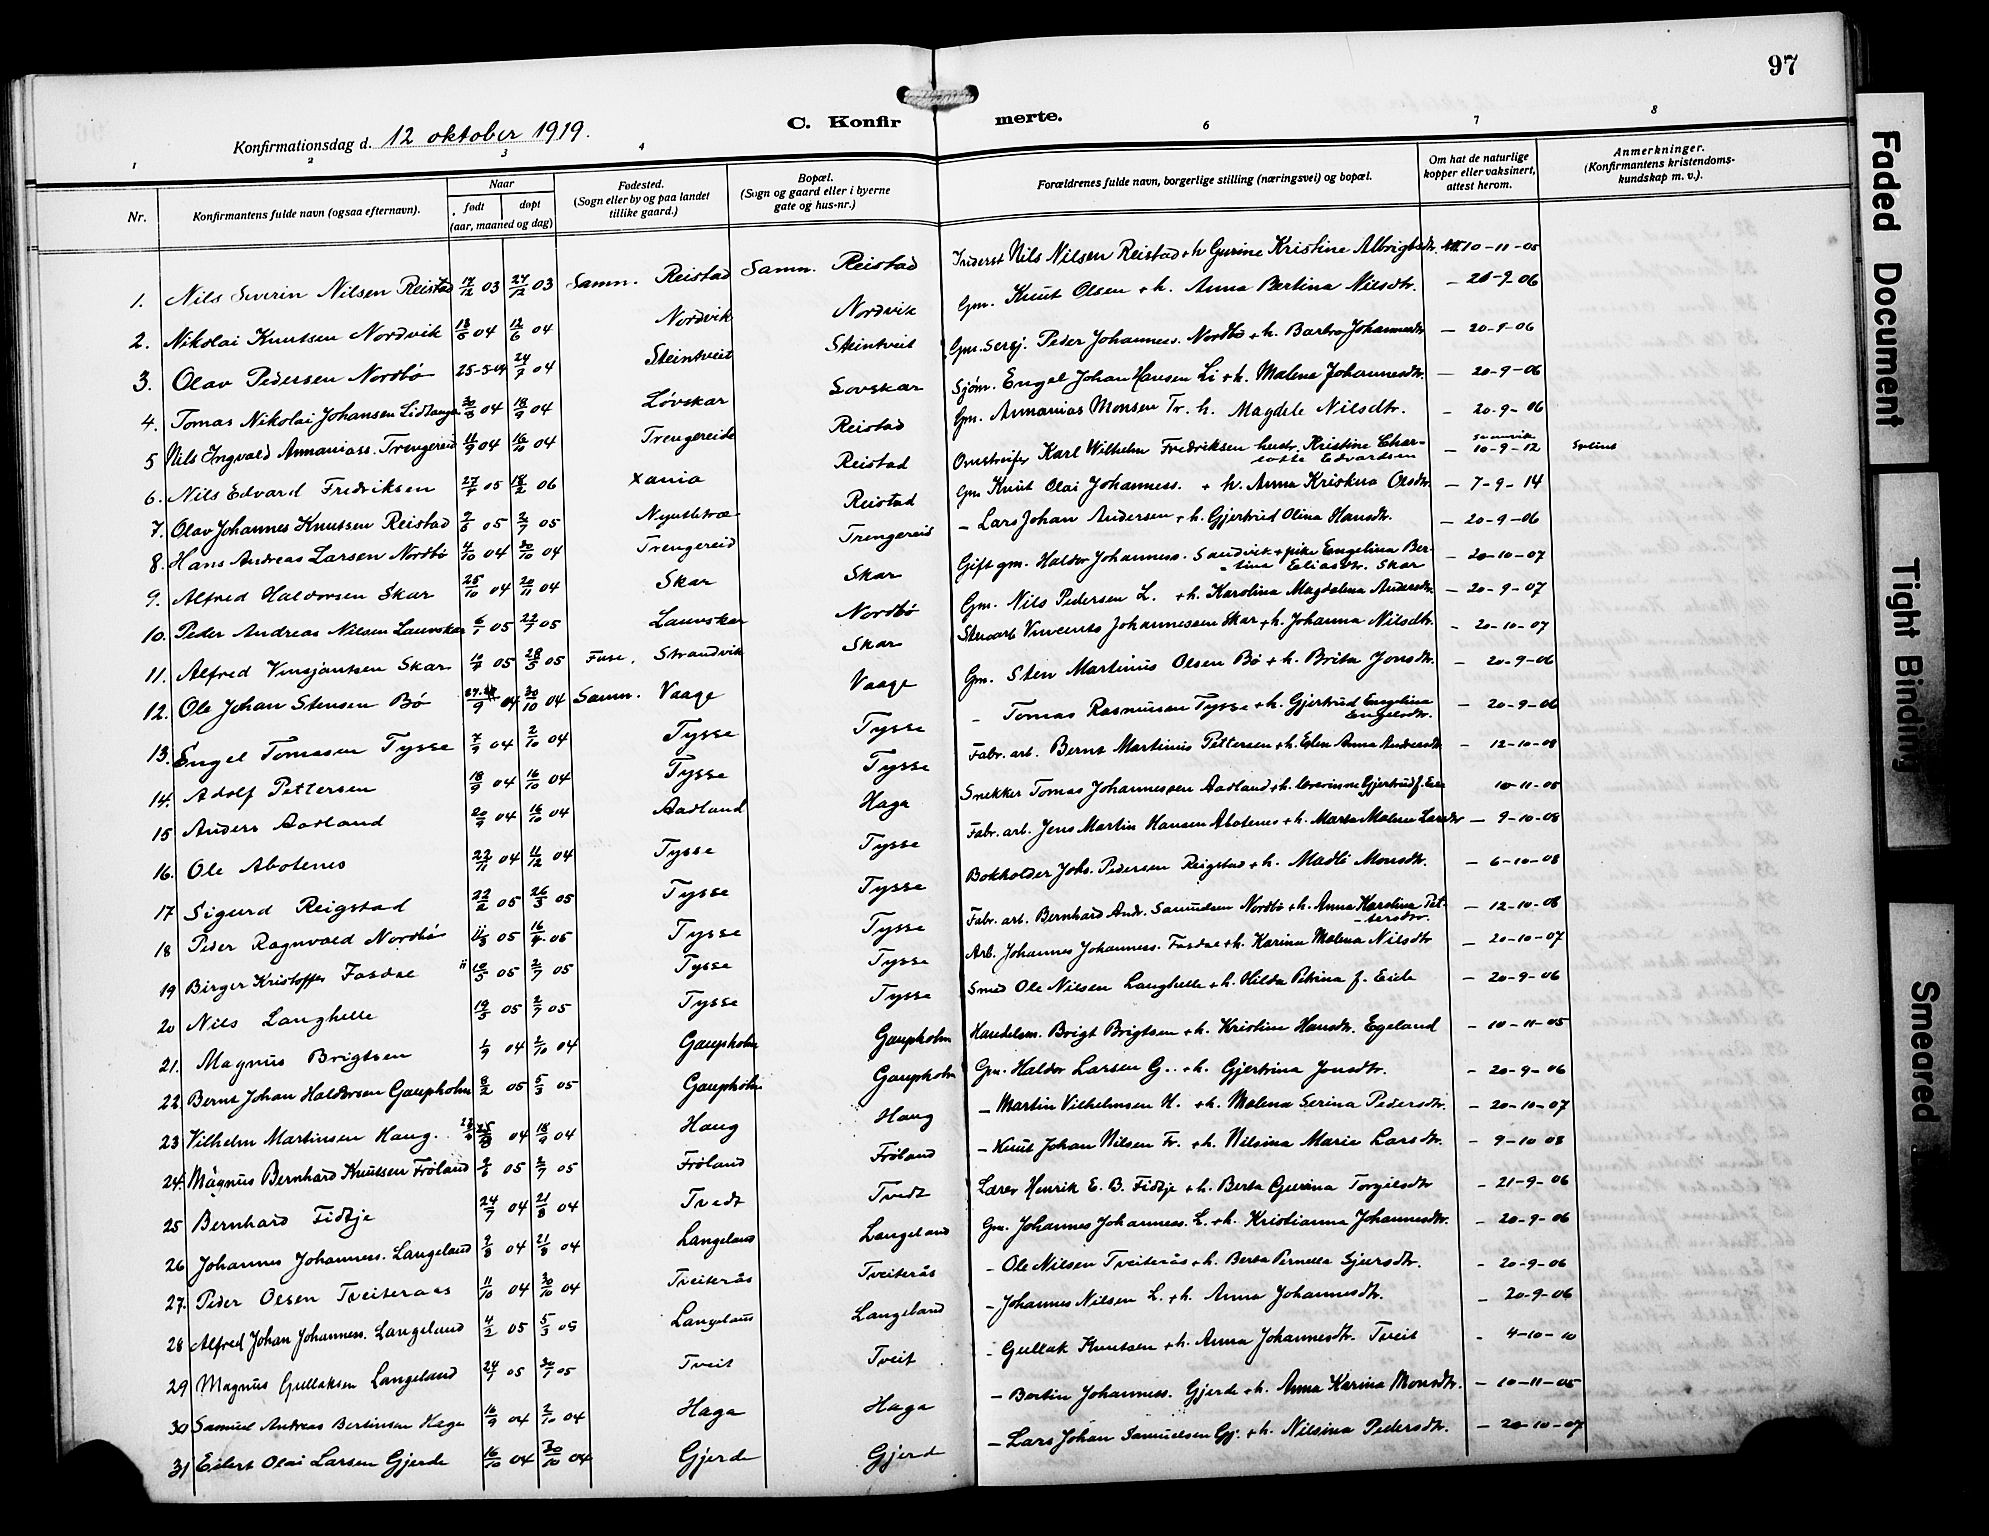 97
Konfirmationsdag d. 12 oktober 1919.
C. Konfirmerte.
1 2 3 4 6 7 8
Nr.
Konfirmantens fulde navn (ogsaa efternavn).
Naar
født døpt
(aar, maaned og dag)
Fødested.
(Sogn eller by og paa landet
tillike gaard.)
Bopæl.
(Sogn og gaard eller i byerne
gate og hus-nr.)
Forældrenes fulde navn, borgerlige stilling (næringsvei) og bopæl.
Om hat de naturlige
kopper eller vaksinert,
attest herom.
Anmerkninger.
(Konfirmantens kristendoms-
kundskap m. v.).
1. Nils Severin Nilsen Reistad 03 27/12 03 Samn. Reistad Samn. Reistad Inderst Nils Nilsen Reistad + h. Gurine Kristine Albrigtsdtr. 10-11-05
2. Nikolai Knutsen Nordvik 04 12/6 04 Nordvik Nordvik Gm. Knut Olsen + h. Anna Bertina Nilsdtr. - 20-9-06
3. Olav Pedersen Nordbø 24/7 04 Steintveit Steintveit Peder Johanness. Nordbø + h. Barbra Johannesdtr. - 20-9-06
4. Tomas Nikolai Johansen 04 18/9 04 Løvskar Lovskar Sjøm. Engel Johan Hansen Li + h. Malena Johannesdtr. - 20-9-06
5 Nils Ingvald Annaniass. Trengereid 11/9 04 16/10 04 Trengereid Reistad Gm. Annanias Monsen Tr. h. Magdele Nilsdtr. - 20-9-06
6. Nils Edvard Fredriksen 05 18/2 06 Xania Reistad Karl Wilhelm Fredriksen hustr. Kristine Char-
lotte Edvardsen - 10-9-12
7. Olav Johannes Knutsen Reistad 05 2/7 05 Reistad Gm Knut Olai Johanness. + h. Anna Kristina Olsdtr. - 7-9-14
8. Hans Andreas Larsen Nordbø 4/10 04 30/10 04 Trengereid Trengereid - Lars Johan Andersen + h. Gjertrud Olina Hansdtr. - 20-9-06
9. Alfred Haldorsen Skar 25/10 04 20/11 04 Skar Skar Gift gm. Haldor Johanness. Sandvik + pike Engelina Ber-
tina Eliasdtr. Skar - 20-10-07
10. Peder Andreas Nilsen Lauvskar 6/1 05 05 Lauvskar Nordbø Gm. Nils Pedersen L. + h. Karolina Magdalena Andersdtr. - 20-9-07
11. Alfred Vinsjantsen Skar 05 28/5 05 Fuse, Strandvik Skar Vincents Johannessen Skar + h. Johanna Nilsdtr. - 20-10-07
12. Ole Johan Stensen Bø 04 30/10 04 Samn. Vaage Vaage Gm. Sten Martinius Olsen Bø + h. Brita Jonsdtr. - 20-9-06
13. Engel Tomasen Tysse 7/9 04 2/10 04 Tysse Tysse - Tomas Rasmussen Tysse + h. Gjertrud Engelina
Engelsdtr. - 20-9-06
14. Adolf Pettersen 18/9 04 16/10 04 Tysse Tysse Fabr. arb. Bernt Martinius Pettersen + h. Elen Anna Andersdtr. - 12-10-08
15 Anders Aadland 20/9 04 16/10 04 Aadland Haga Snekker Tomas Johannessen Aadland + h. Gjertrud f. 10-11-05
16. Ole Abotenes 22/11 04 11/12 04 Tysse Tysse Fabr. arb. Jens Martin Hansen Abotenes + h. Marta Malene Larsdtr - 9-10-08
17 Sigurd Reigstad 22/2 05 26/3 05 Tysse Tysse Bokholder Johs. Pedersen Reigstad + h. Madli Monsdtr. - 6-10-08
18 Peder Ragnvald Nordbø 05 16/4 05 Tysse Tysse Fabr. arb. Bernhard Andr. Samuelsen Nordbø + h. Anna Karolina Pet-
tersdtr. - 12-10-08
19 Birger Kristoffer Fosdae 05 2/7 05 Tysse Tysse Arb. Johannes Johanness. Fosdae + h. Karina Malena Nilsdtr - 20-10-07
20 Nils Langhelle 19/5 05 2/7 05 Tysse Tysse Smed Ole Nilsen Langhelle + h. Hilda Petrina f. Eide - 20-9-06
21. Magnus Brigtsen 1/9 04 2/10 04 Gaupholm Gaupholm Handelsm. Brigt Brigtsen + h. Kristine Hansdtr. Egeland - 10-11-05
22 Bernt Johan Haldorsen Gaupholm 8/2 05 5/3 05 Gaupholm Gaupholm Gm. Haldor Larsen G. + h. Gjertrina Jonsdtr. - 20-9-06
23 Vilhelm Martinsen Haug. 04 18/9 04 Haug Haug - Martin Vilhelmsen H. + h. Malena Serina Pedersdtr. - 20-10-07
24. Magnus Bernhard Knutsen Frøland 05 2/7 05 Frøland Frøland - Knut Johan Nilsen Fr. + h. Nilsina Marie Larsdtr. - 9-10-08
25 Bernhard Fidtje 24/7 04 21/8 04 Tvedt Tvedt Lærer Henrik E. B. Fidtje + h. Berta Gurina Torgilsdtr - 21-9-06
26 Johannes Johanness. Langeland 04 21/8 04 Langeland Langeland Gm. Johannes Johanness. L. + h. Kristianna Johannesdtr. - 20-9-06
27. Peder Olsen Tveiteraas 11/10 04 30/10 04 Tveiterås Tveiterås - Ole Nilsen Tveiterås + h. Berta Pernella Sjursdtr. - 20-9-06
28 Alfred Johan Johanness. Langeland 4/2 05 5/3 05 Langeland Langeland - Johannes Nilsen L. + h. Anna Johannesdtr. - 20-9-06
29 Magnus Gullaksen Langeland 05 05 Tveit Tveit - Gullak Knutsen + h. Anna Johannesdtr. Tveit - 4-10-10
30 Samuel Andreas Bertinsen Haga 16/9 04 2/10 04 Haga Haga - Bertin Johanness. Gjerde + h. Anna Karina Monsdtr. - 10-11-05
31 Eilert Olai Larsen Gjerde 16/10 04 30/10 04 Gjerde Gjerd - Lars Johan Samuelsen Gj. + h. Nilsina Pedersdtr. - 20-10-07
Faded Document
Tight Binding
Smeared